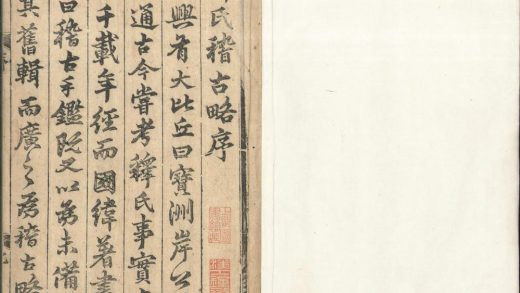 氏稽古略序
興有大比丘曰寶洲岸公
通古今嘗考釋氏事實
千載年經而國緯著書
曰稽古手鑑既又以為未備
其舊輯而廣之為稽古略